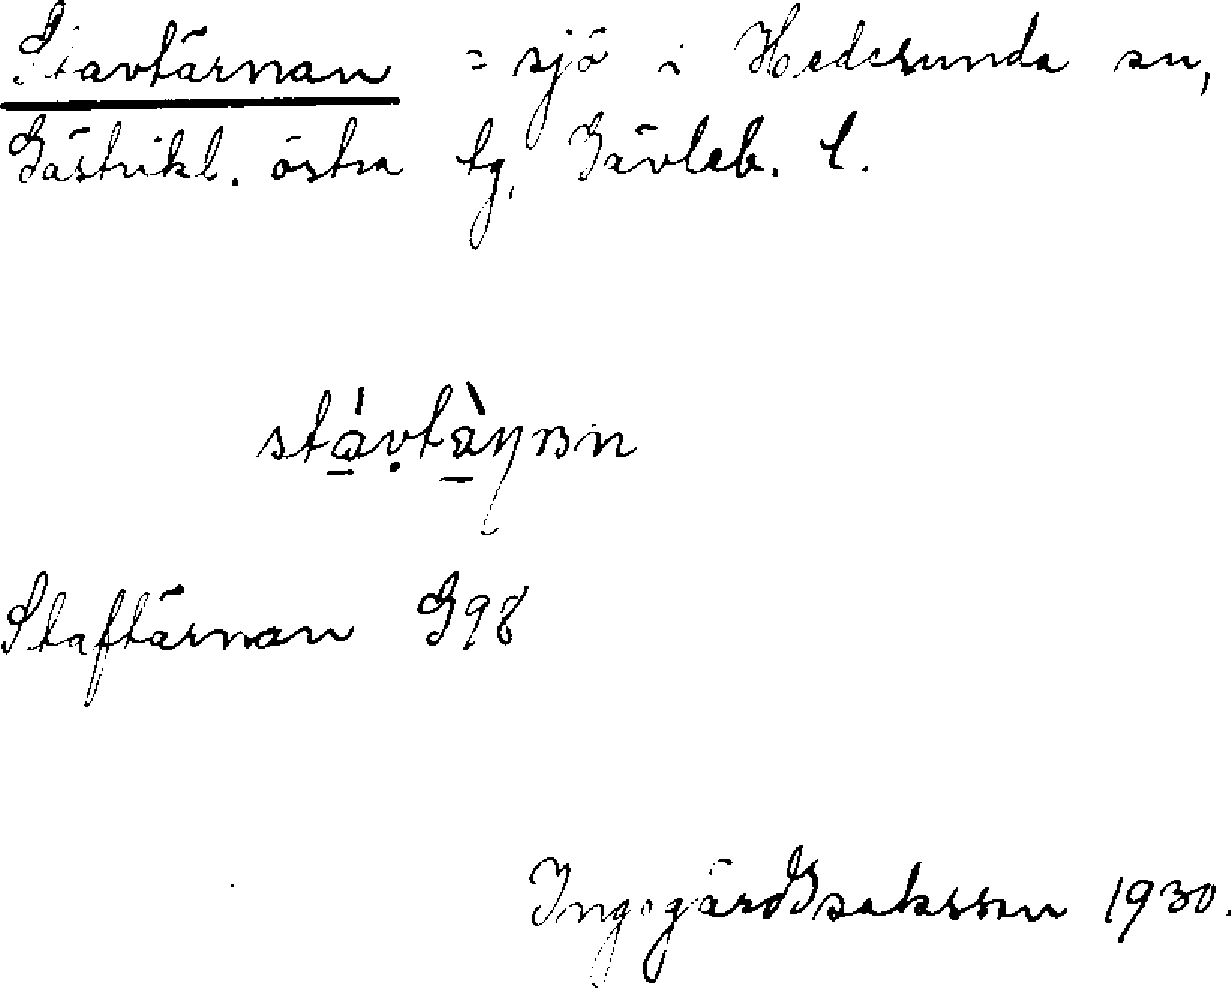 Stavtärnan = sjö i Hedesunda sn,
Gästrikl. östra tg, Gävleb. l.
Staftärnan G98
Ingegärd Isaksson 1930.